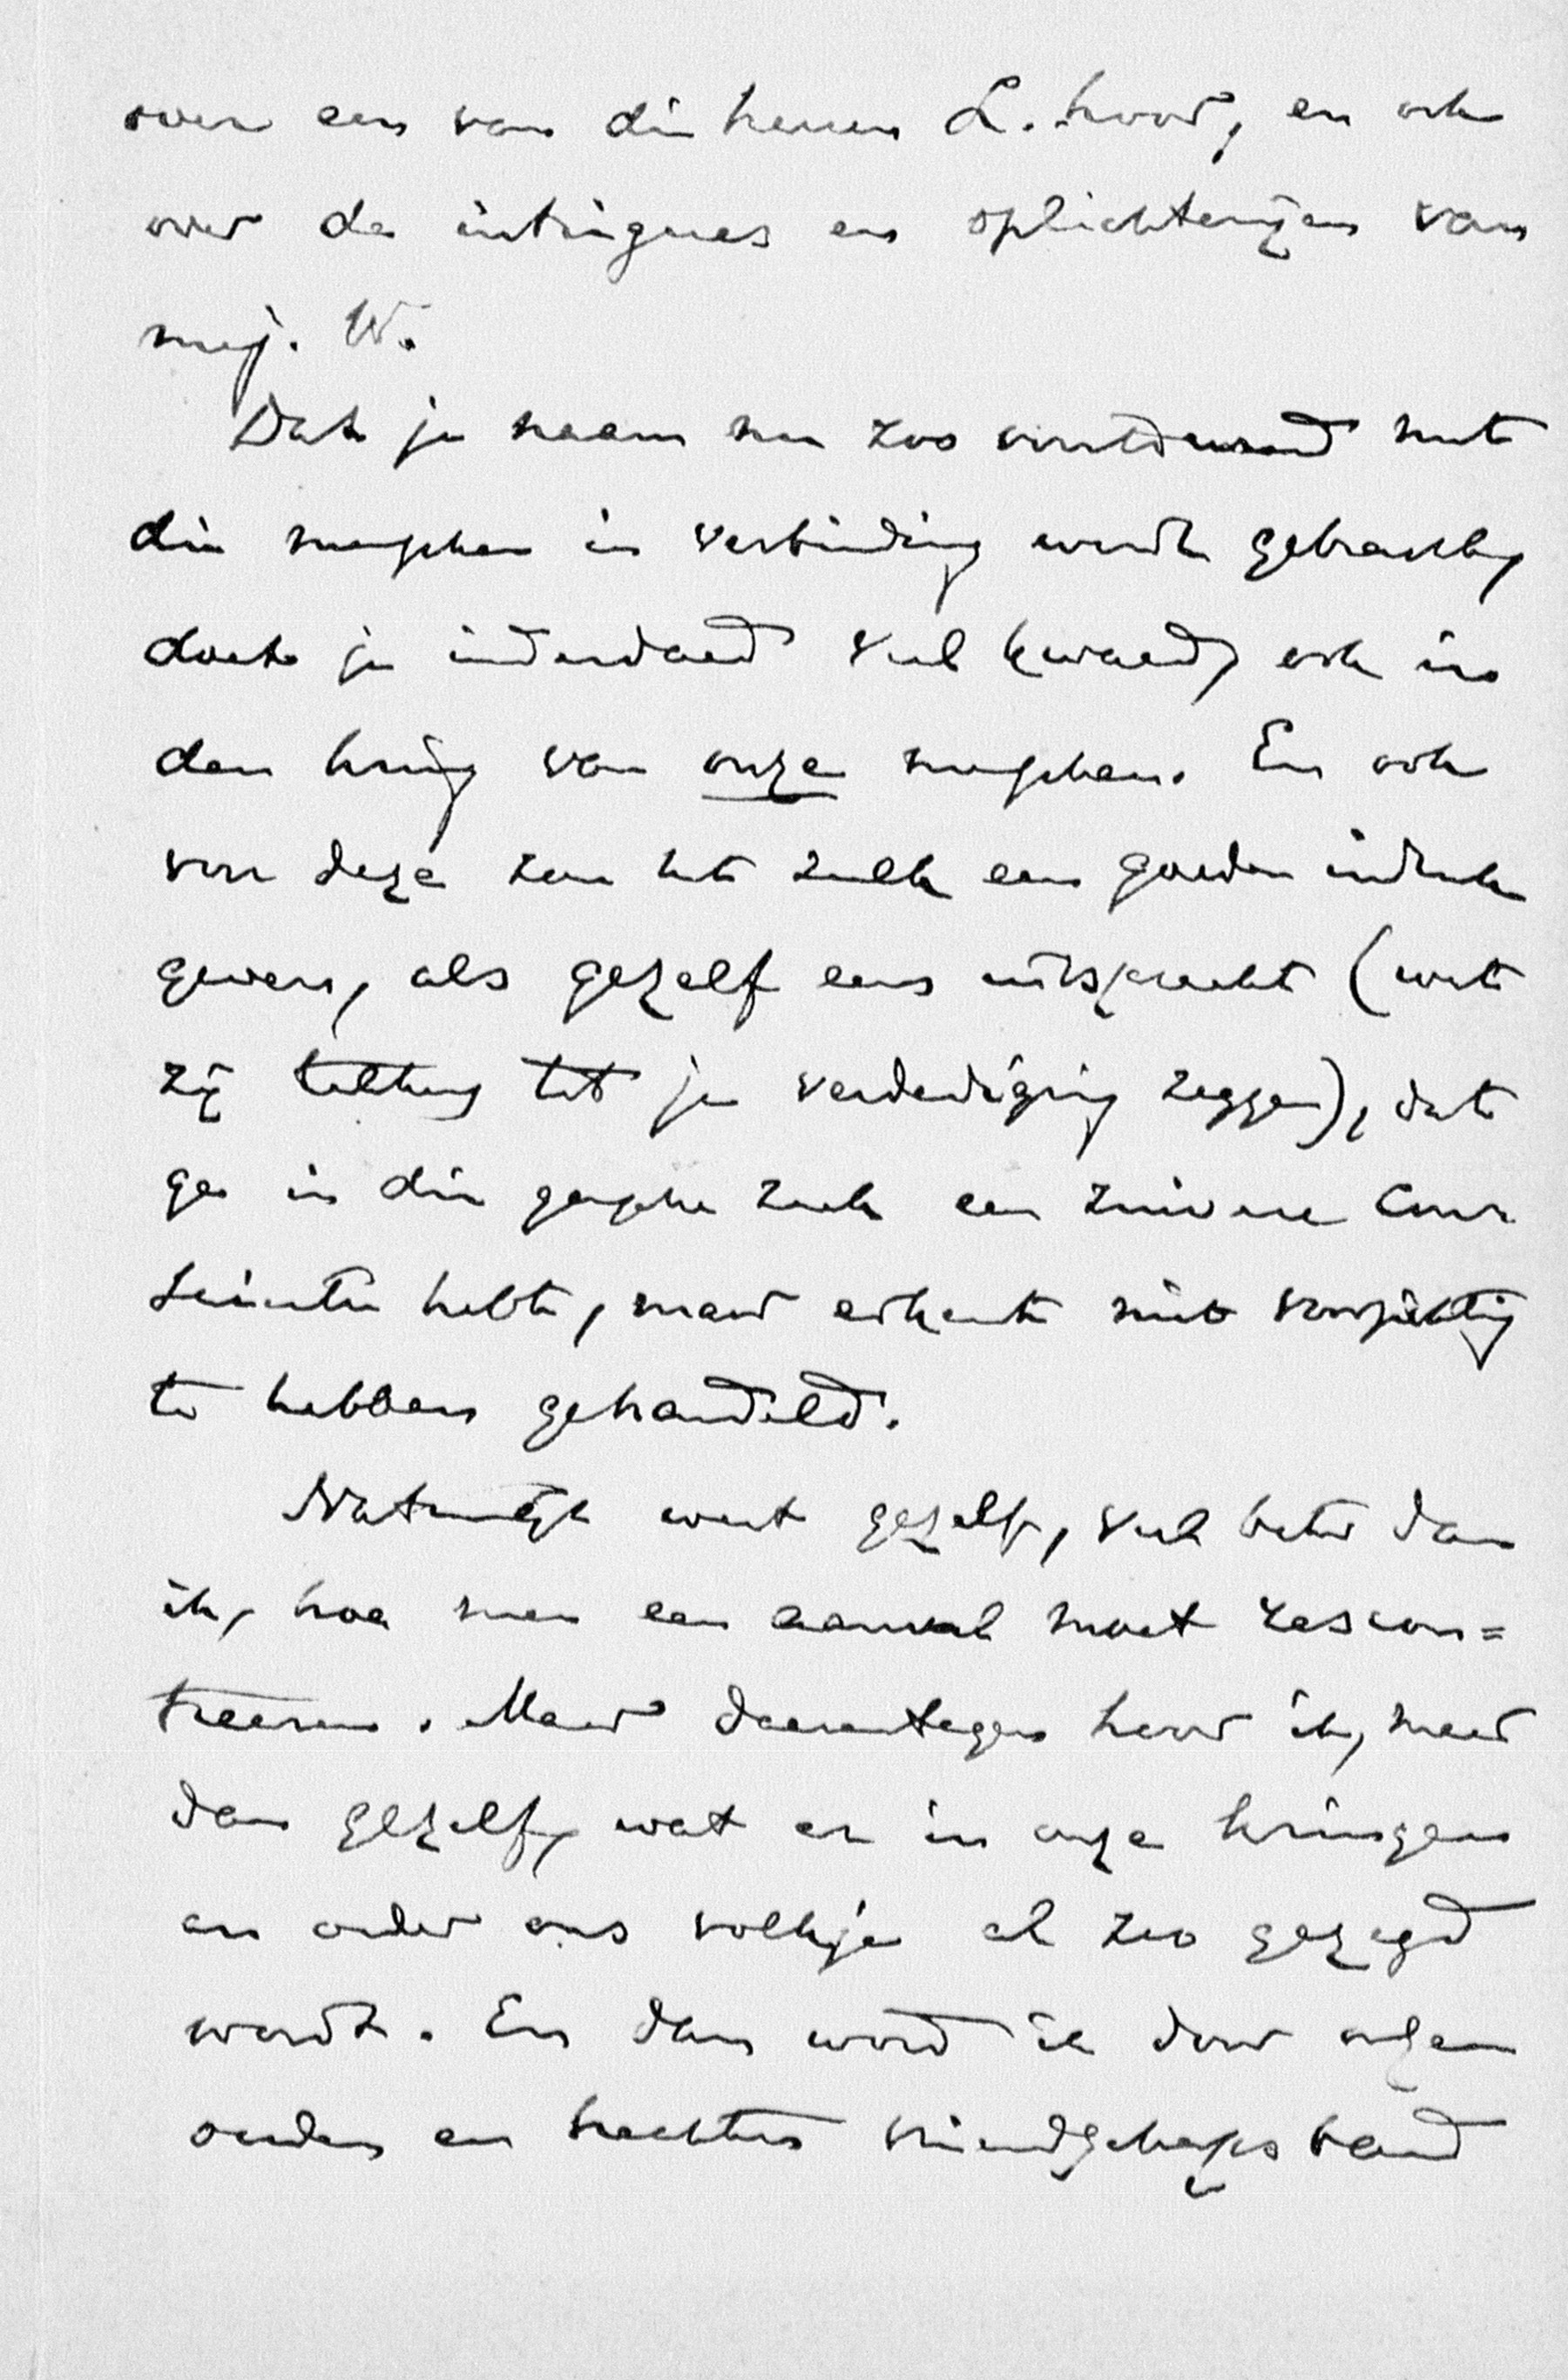 over een van die heeren L. hoor, en ook
over de intrigues en oplichterijen van
mej. W.
Dat je naam nu zoo voortdurend met
die menschen in verbinding wordt gebracht,
doet je inderdaad veel kwaad, ook in
den kring van onze menschen. En ook
voor deze zou het zulk een goeden indruk
geven, als ge zelf eens uitspraakt (wat
zij telkens tot je verdediging zeggen), dat
ge in die gansche zaak een zuivere con-
scientie hebt, maar erkent niet voorzichtig
te hebben gehandeld.
Natuurlijk weet ge zelf, veel beter dan
ik, hoe men een aanval moet rescon=
treeren. Maar daarentegen hoor ik, meer
dan ge zelf, wat er in onze kringen
en onder ons volkje al zoo gezegd
wordt. En dan word ik door onzen
ouden en hechten vriendschapsband